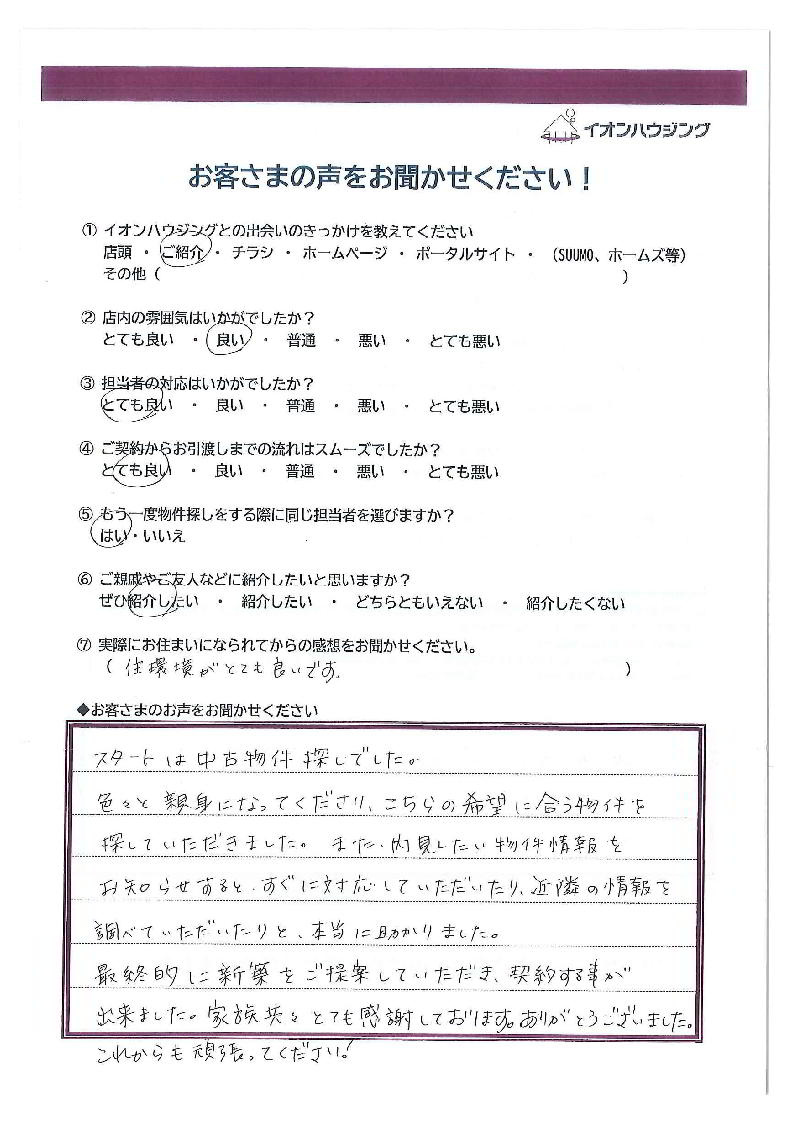 イオンハウジング
お客さまの声をお聞かせください！
① イオンハウジングとの出会いのきっかけを教えてください
店頭 ・ ご紹介 ・ チラシ ・ ホームページ ・ ポータルサイト ・ （SUUMO、ホームズ等）
その他（ ）
② 店内の雰囲気はいかがでしたか？
とても良い ・ 良い ・ 普通 ・ 悪い ・ とても悪い
③ 担当者の対応はいかがでしたか？
とても良い ・ 良い ・ 普通 ・ 悪い ・ とても悪い
④ ご契約からお引渡しまでの流れはスムーズでしたか？
とても良い ・ 良い ・ 普通 ・ 悪い ・ とても悪い
⑤ もう一度物件探しをする際に同じ担当者を選びますか？
はい・いいえ
⑥ ご親戚やご友人などに紹介したいと思いますか？
ぜひ紹介したい ・ 紹介したい ・ どちらともいえない ・ 紹介したくない
⑦ 実際にお住まいになられてからの感想をお聞かせください。
（ 住環境がとても良いです。 ）
◆お客さまのお声をお聞かせください
スタートは中古物件探しでした。
色々と親身になってくださり、こちらの希望に合う物件を
探していただきました。また、内見したい物件情報を
お知らせすると、すぐに対応していただいたり、近隣の情報を
調べていただいたりと、本当に助かりました。
最終的に新築をご提案していただき、契約する事が
出来ました。家族共々とても感謝しております。ありがとうございました。
これからも頑張ってください！